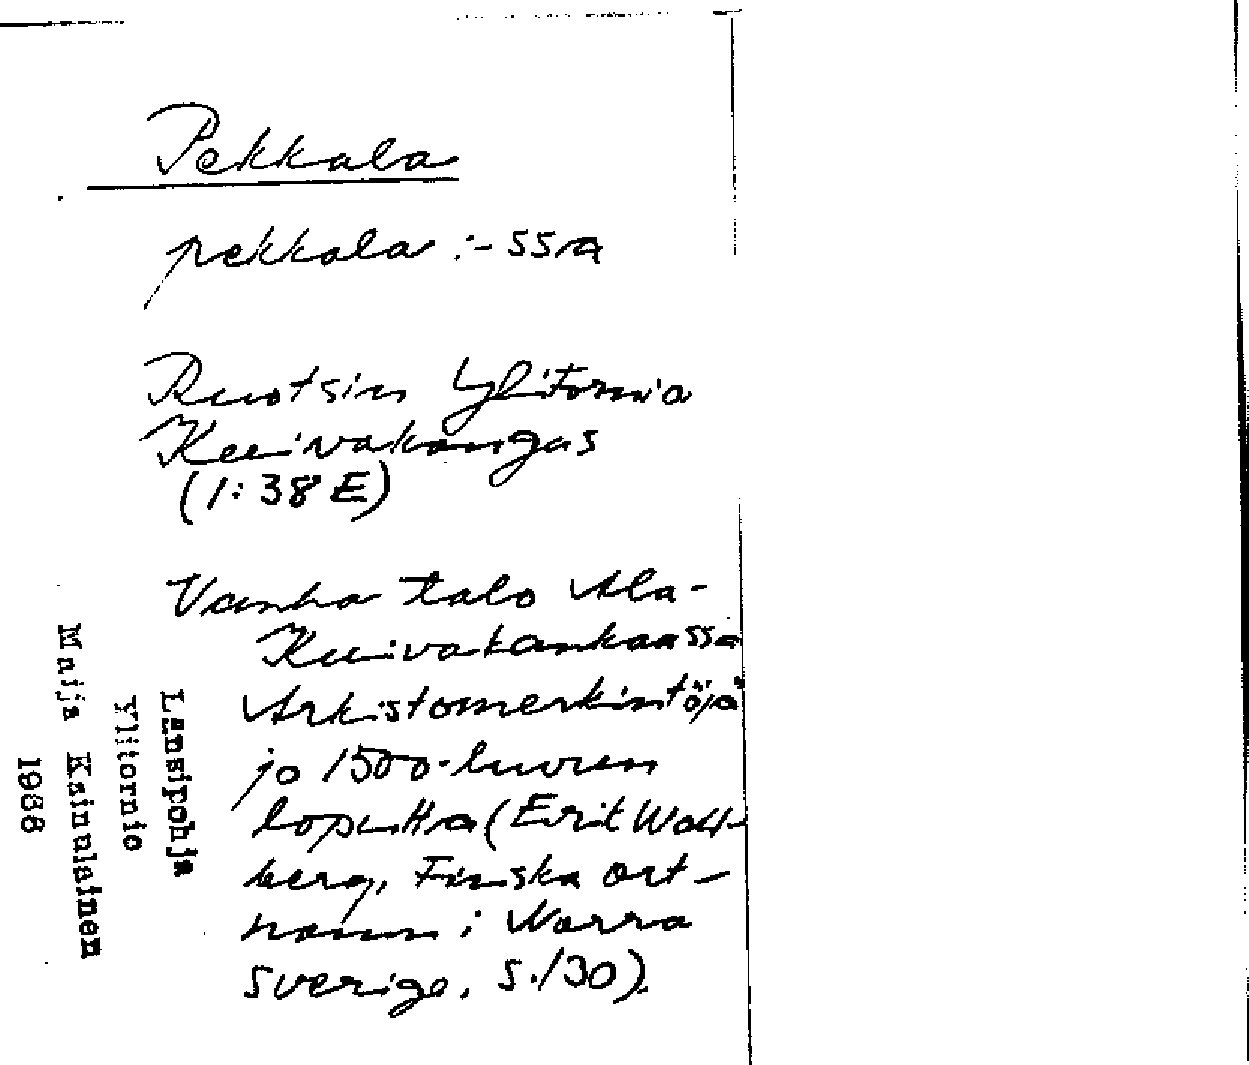 Pekkala
pekkala :- ssa
Ruotsin Ylitornio
Kuivakangas
(1:38 E)
Vanha talo Ala-
Kuivakankaassa
Arkistomerkintöjä
jo 1500-luvun
lopulta (Erik Wahl-
berg, Finska ort-
namn i Norra
Sverige, s. 130).
Länsipohja
Ylitornio
Maija Kainulainen
1968